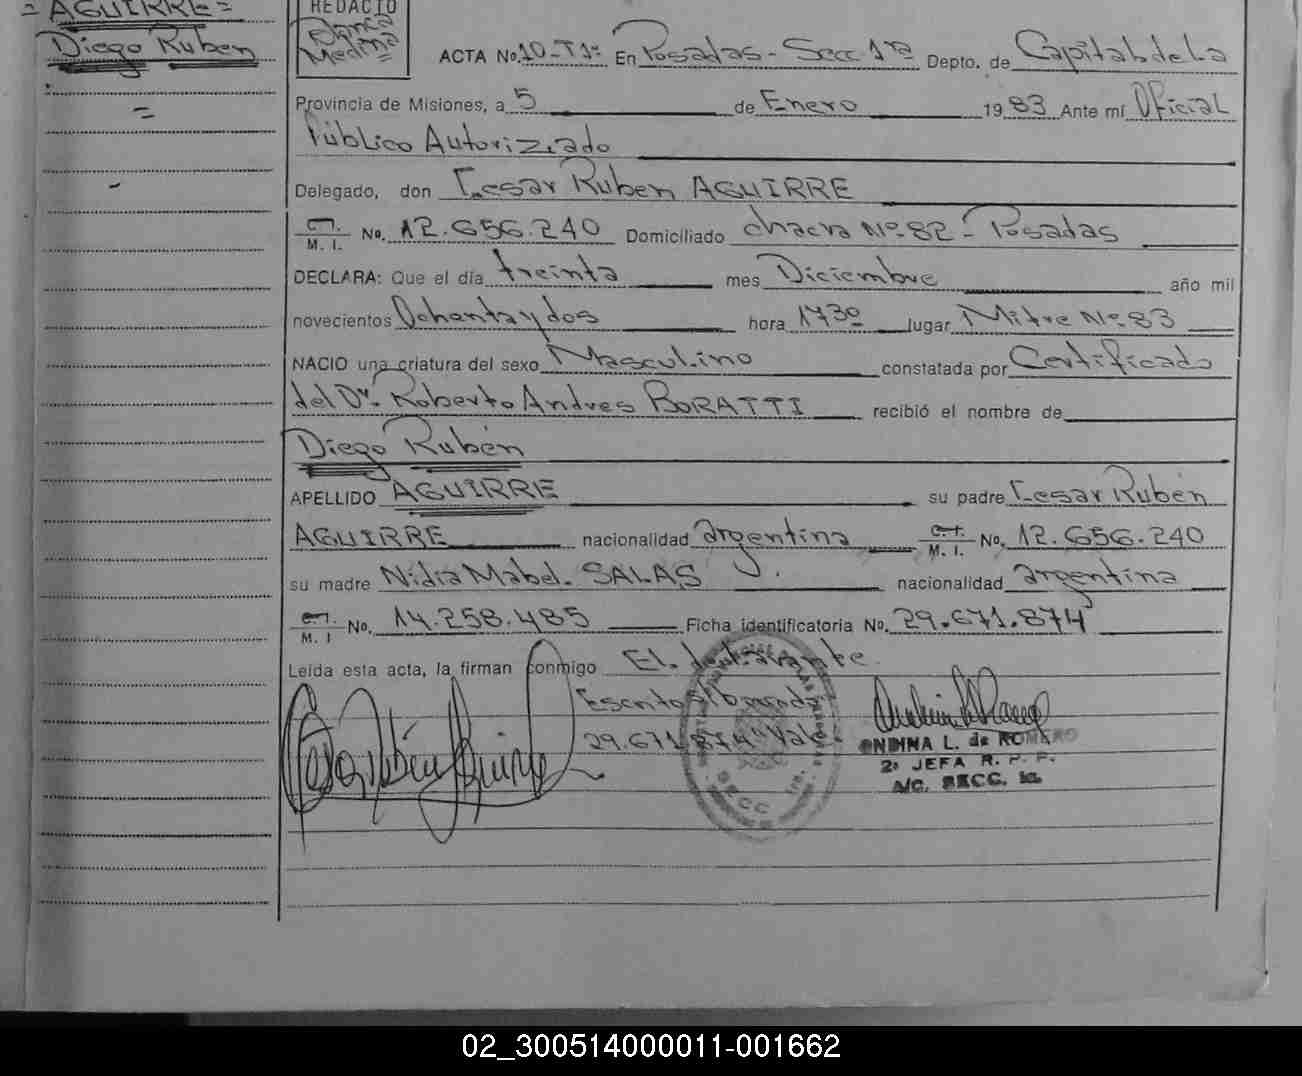 = AGUIRRE =
Diego Ruben
=
REDACTO
Blanca
Medina
ACTA No. 10-T1º En Posadas - Secc 1ra Depto. de Capital de la
Provincia de Misiones, a 5 de Enero 1983 Ante mí Oficial
Público Autorizado
Delegado, don Cesar Ruben AGUIRRE
M. I. No. 12.656.240 Domiciliado chacra Nº 82 - Posadas
DECLARA: Que el día treinta mes Diciembre año mil
novecientos Ochenta y dos hora 1730 lugar Mitre Nº 83
NACIO una criatura del sexo Masculino constatada por Certificado
del Dr. Roberto Andres BORATTI recibió el nombre de
Diego Rubén
APELLIDO AGUIRRE su padre Cesar Rubén
AGUIRRE nacionalidad argentina C.I. M. I. No. 12.656.240
su madre Nidia Mabel SALAS nacionalidad argentina
M. I No. 14.258.485 Ficha identificatoria No. 29.671.874
Leída esta acta, la firman conmigo El declarante.
Escrito
29.671.874 Vale
ONDINA L. de ROMERO
2º JEFA R. P. P.
A/C. SECC. 1a.
SECC. 1ra.
02_300514000011-001662